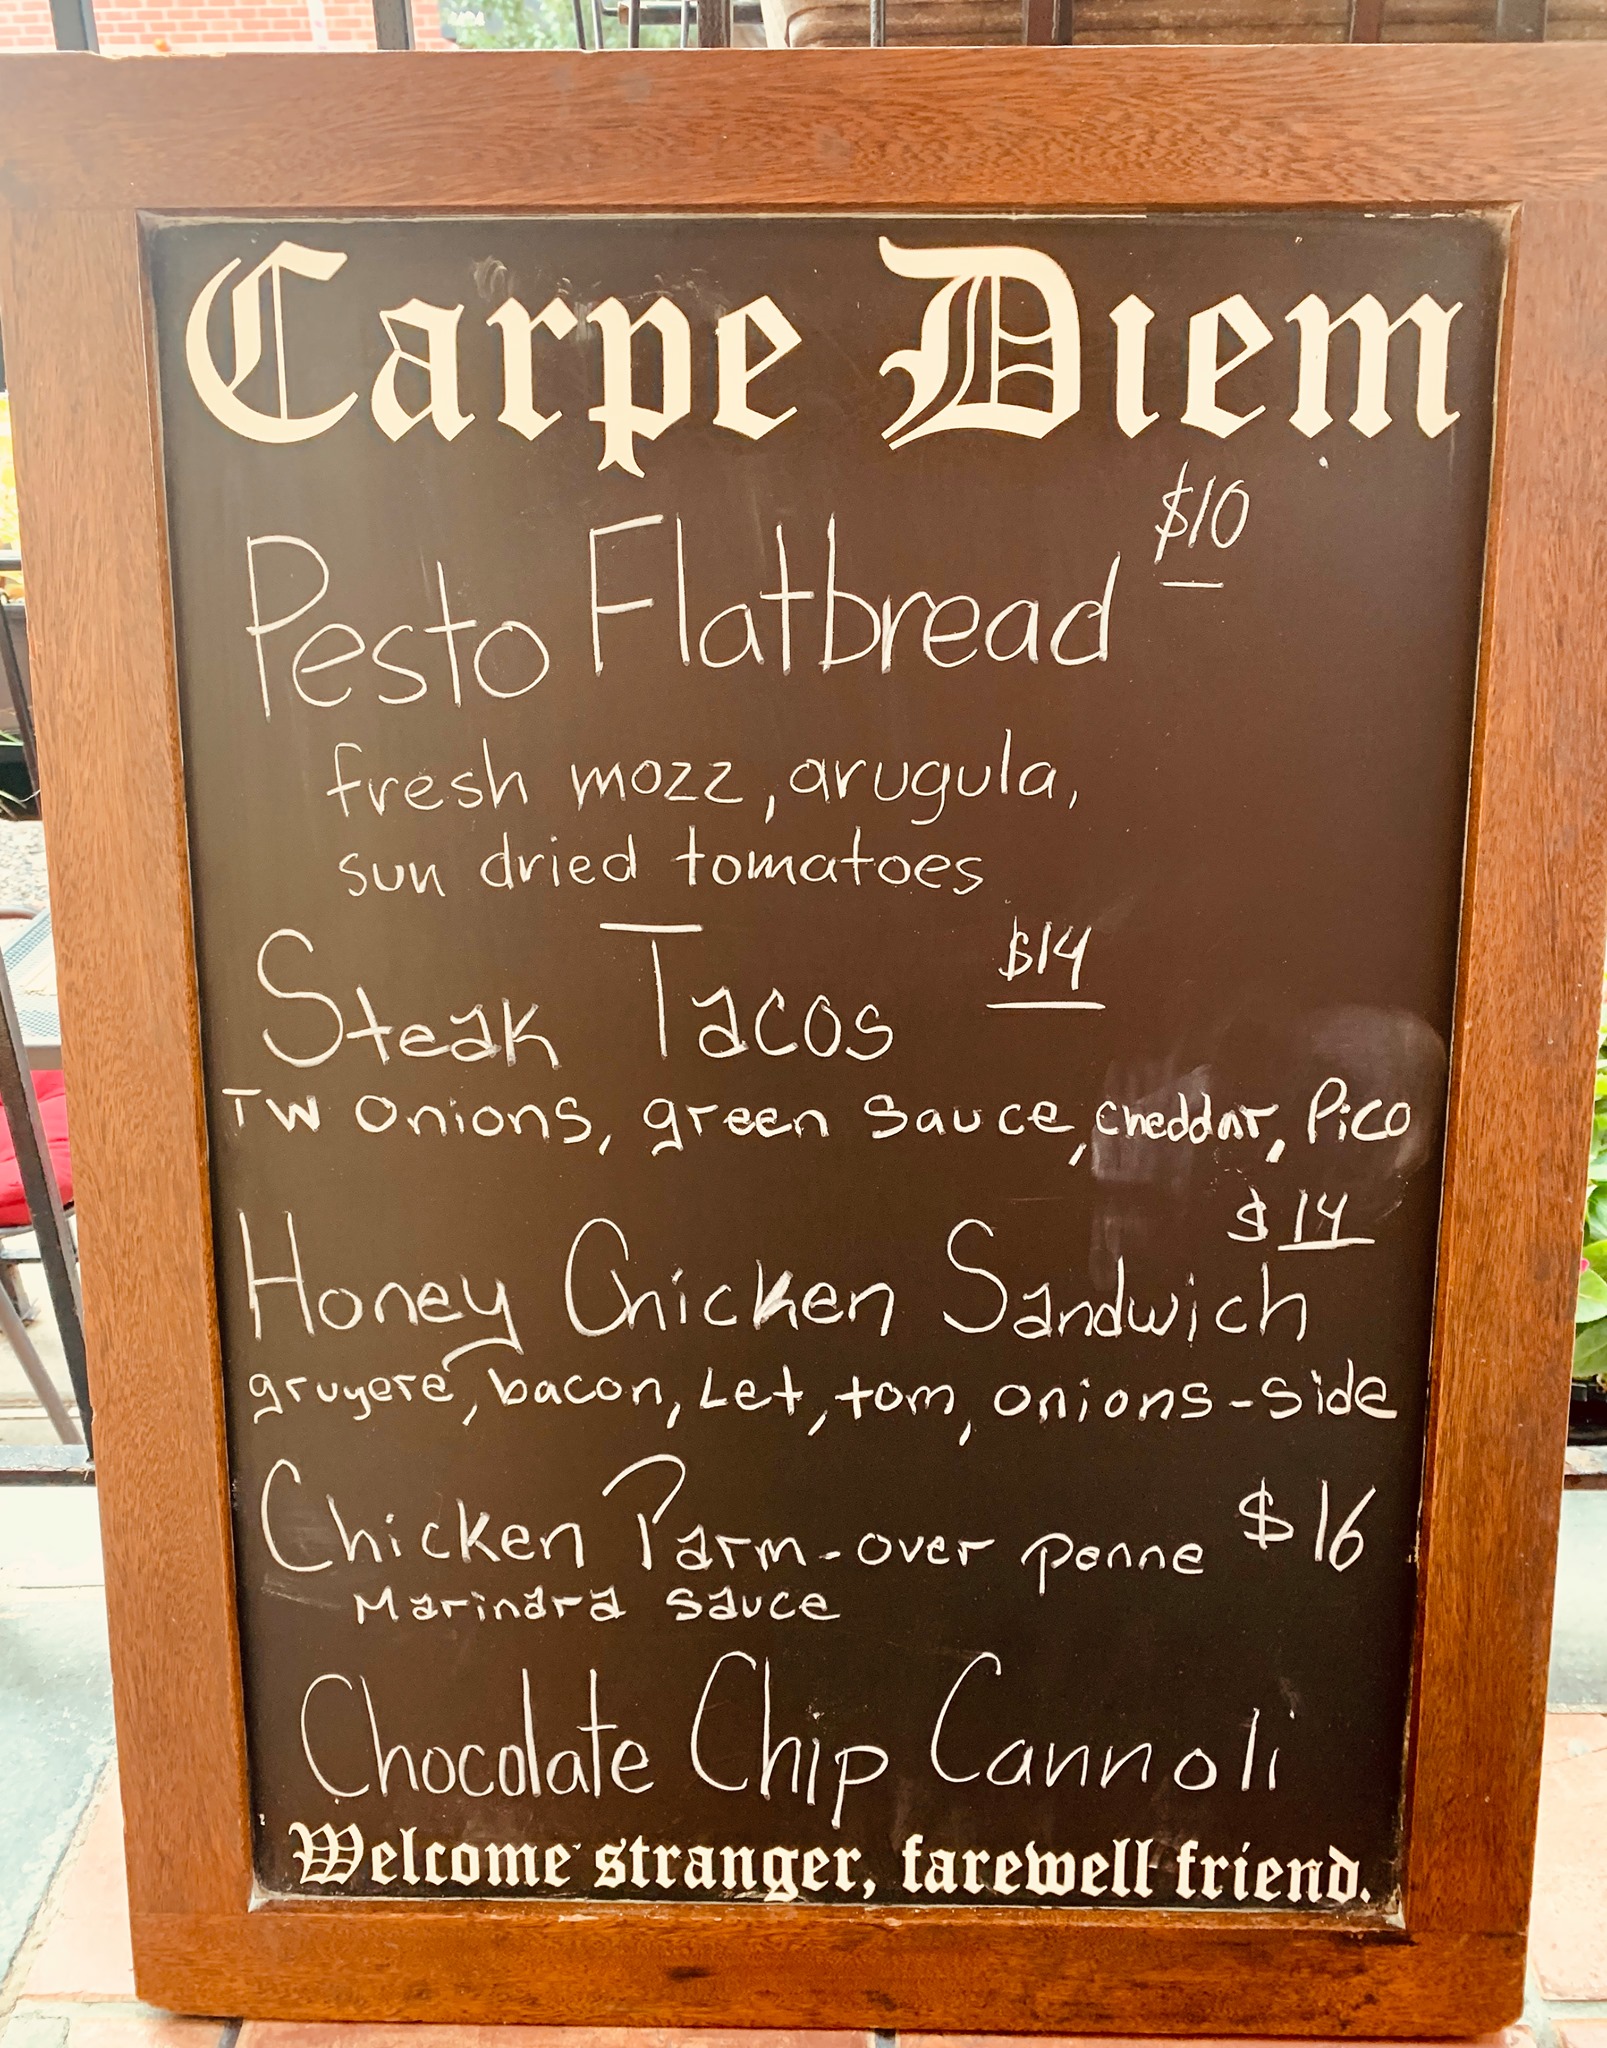 Carpe Diem
$10
Pesto Flatbread
fresh mozz, arugula,
sun dried tomatoes
Steak Tacos $14
TW onions, green sauce, cheddar, Pico
$14
Honey Chicken Sandwich
gruyere, bacon, Let, tom, onions-side
Chicken Parm-over penne $16
Marinara sauce
Chocolate Chip Cannoli
Welcome stranger, farewell friend.